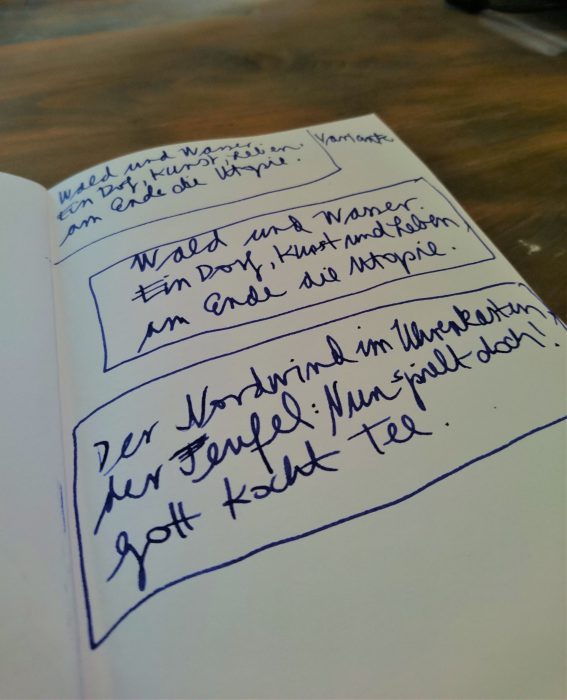 Wald und Wasser.
Ein Dorf, Kunst, Leben.
am Ende die Utopie.
Variante
Wald und Wasser.
Ein Dorf, Kunst und Leben,
am Ende die Utopie.
Der Nordwind im Uhrenkasten,
der Teufel: Nun spielt doch!
Gott kocht Tee.